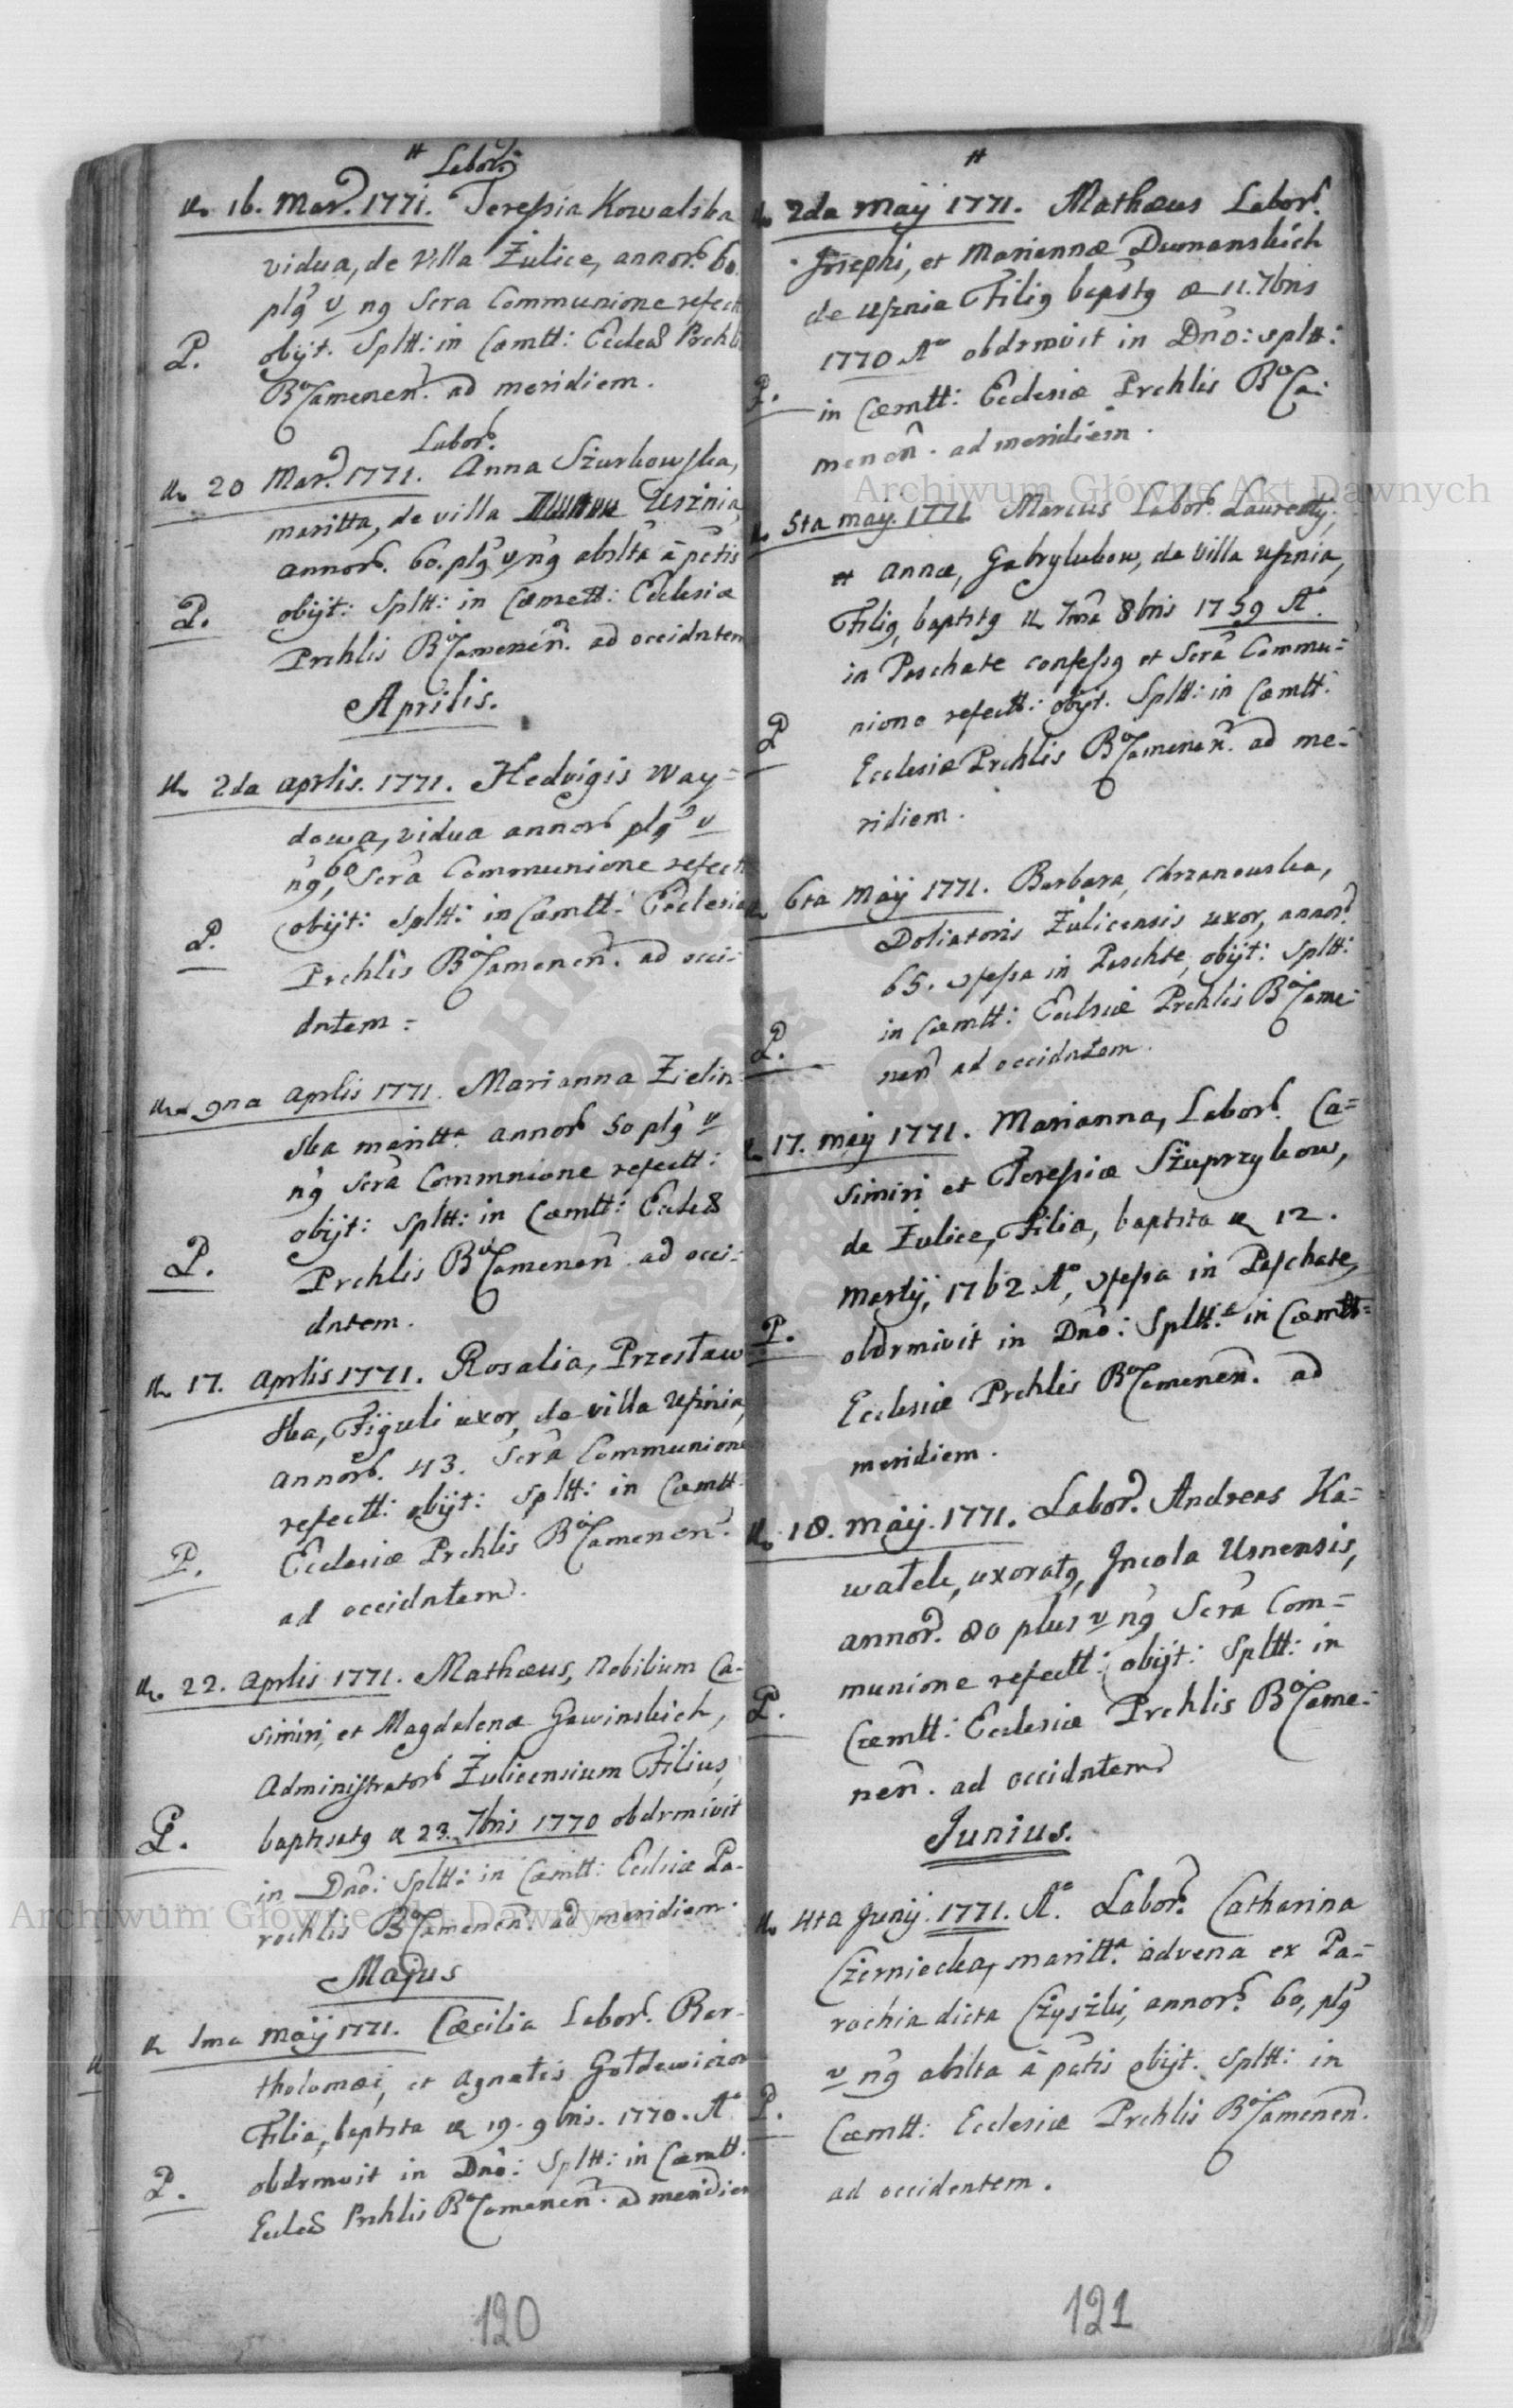 Labor.
16. Mar. 1771. Teressia Kowalska
vidua, de villa Żulice, annor. 60.
plg v ng Scra Communione refect
P. obijt. Spltt: in Cœmtt: Eccles Prchls
Białamenen. ad meridiem.
Labor.
20 Mar. 1771. Anna Szurkowska,
maritta, de villa Usznia,
annor. 60. plg v ng absltà à pctis
P. obijt: Spltt: in Cœmett: Ecclesiæ
Prchlis Białamenen. ad occidntem
Aprilis.
2da Aprlis. 1771. Hedvigis Way=
dowa, vidua annor plg v
ng, 60 Scra Communione refect
P. obijt: Spltt: in Cœmtt: Ecclesiæ
Prchlis Białamenen. ad occi=
dntem =
9na Aprlis 1771. Marianna Zielin
ska maritta annor 50 plg v
ng Scra Commnione refectt:
obijt: Spltt: in Cœmtt: Eccles
P. Prchlis Białamenen. ad occi=
dntem.
17. Aprlis 1771. Rosalia, Przesław
ska, Figuli uxor, de villa Usznia,
annor. 43. Scra Communione
refectt: obijt: Spltt: in Cœmtt
P. Ecclesiæ Prchlis Białamenen.
ad occidntem.
22. Aprlis 1771. Mathæus, Nobilium Ca=
simiri, et Magdalenæ Gawinskich,
Administrator Żulicensium Filius,
P. baptisatg 23. 7bris 1770 obdrmivit
in Dno: Spltt: in Cœmtt: Ecclsiæ Pa=
rochlis Białamenen. ad meridiem.
Majus
1ma Maij 1771. Cæcilia Labor. Bar=
tholomæi, et Agnetis
Filia, baptsta 19. 9bris. 1770. Ao
obdrmvit in Dno: Spltt: in Cœmtt.
P. Eccles Prchlis Białamenen. ad meridiem
120
2da Maij 1771. Mathæus Labor.
Josephi, et Mariannæ Dumanskich
de Usznia Filig baptstg 11. 7bris
1770 Ao obdrmvit in Dno: spltt:
P. in Cœmtt: Ecclesiæ Prchlis Biała=
menen. ad meridiem.
5ta May. 1771 Marcus Labor. Laurentij,
et Annæ, Gabrylukow, de villa Usznia,
Filig, baptstg 7ma 8bris 1759 Ao.
in Paschate confessg et Scra Commu=
nione refectt: obijt. Spltt: in Cœmtt:
P. Ecclesiæ Prchlis Białamenen. ad me=
ridiem.
6ta Maij 1771. Barbara, Chrzanowska,
Doliatoris Żulicensis uxor, annor
65. in Paschte, obijt: Spltt:
in Cœmtt: Ecclsiæ Prchlis Białame=
P. nen ad occidntem.
17. Maij 1771. Marianna, Labor. Ca=
simiri et Teressiæ Szuprzykow,
de Żulice, Filia, baptsta 12.
Martij, 1762 Ao, in Paschate,
P. obdrmivit in Dno: Spltt: in Cœmtt=
Ecclesiæ Prchlis Białamenen. ad
meridiem.
18. Maij. 1771. Labor. Andreas Ka=
watek, uxoratg, Incola Usnensis,
annor. 80 plus v ng Scra Com=
munione refectt: obijt: Spltt: in
P. Cœmtt: Ecclesiæ Prchlis Białame=
nen. ad occidntem
Junius.
4ta Junij. 1771. Ao. Labor. Catharina
Czerniecka, maritta. advena ex Pa=
rochia dicta annor. 60, plg
v ng absltà à pctis obijt. Spltt: in
P. Cœmtt: Ecclesiæ Prchlis Białamenen.
ad occidentem.
121
Archiwum Główne Akt Dawnych
Archiwum Główne Akt Dawnych